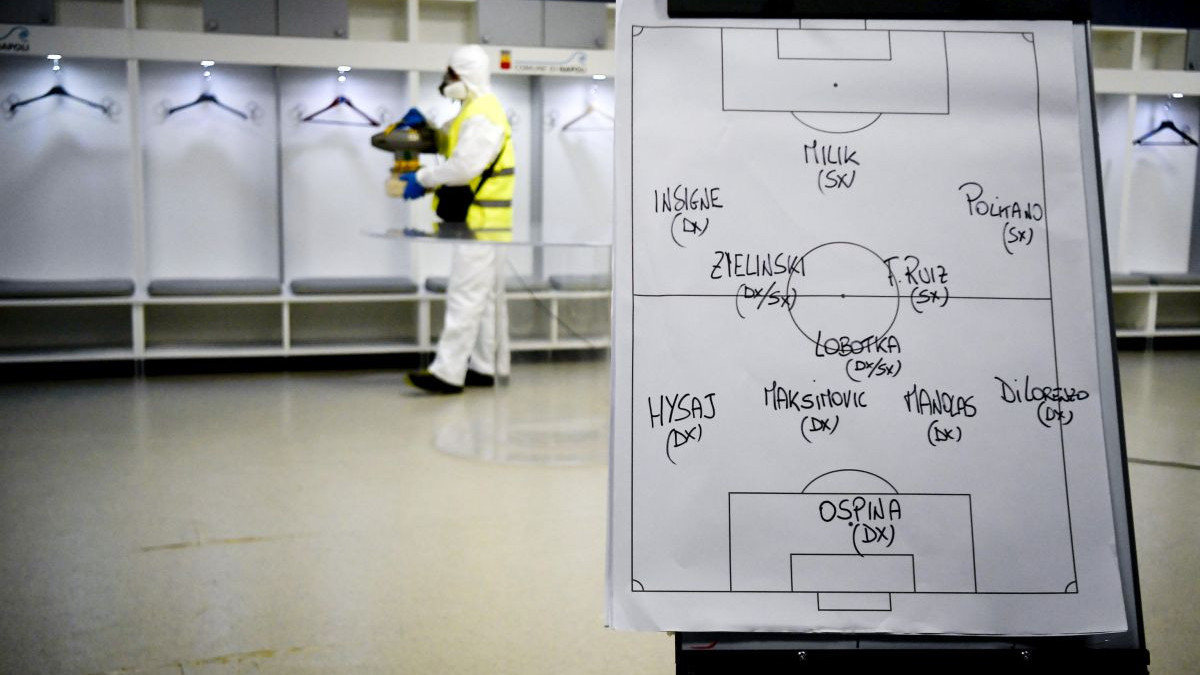 NAPOLI
COMUNE DI NAPOLI
MILIK
(SX)
INSIGNE
(DX)
POLITANO
(SX)
ZIELINSKI
(DX/SX)
F. RUIZ
(SX)
LOBOTKA
(DX/SX)
HYSAJ
(DX)
MAKSIMOVIC
(DX)
MANOLAS
(DX)
DI LORENZO
(DX)
OSPINA
(DX)